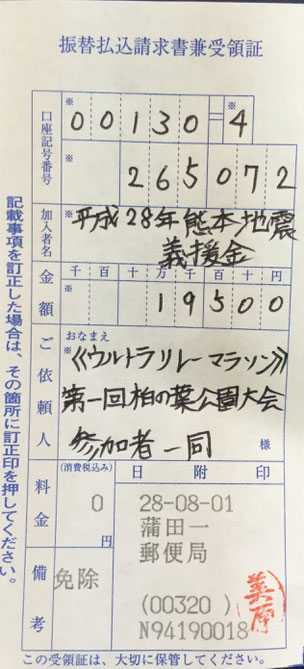 振替払込請求書兼受領証
口座記号番号
※ 00130=※ 4
※ 265072
加入者名
※ 平成28年熊本地震
義援金
金額
千百十万千百十円
※ 19500
ご依頼人
おなまえ
※ 《ウルトラリレーマラソン》
第一回柏の葉公園大会
参加者一同 様
料金
(消費税込み)
0
円
備考
免除
日附印
28-08-01
蒲田一
郵便局
(00320 )
N94190018
美原
記載事項を訂正した場合は、その箇所に訂正印を押してください。
この受領証は、大切に保管してください。